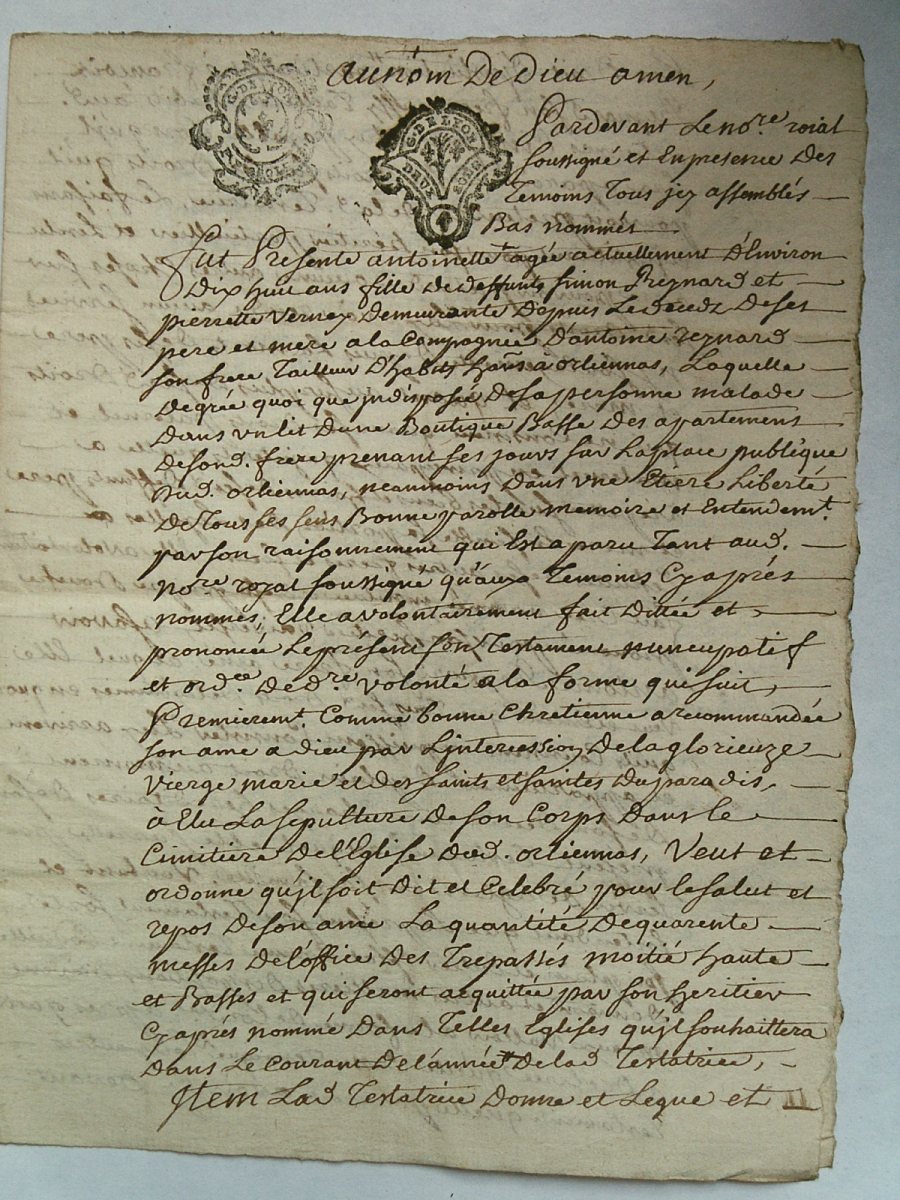 au nom De Dieu amen,
G. DE LYON
DEUX SOLS
Pardevant Le no.re roial
soussigné et En presence Des
Temoins Tous jcy assemblés
Bas nommés
fut Presente antoinette agée actuellement D'Environ
Dix huit ans fille de deffunts simon Reynard et
pierrette Vernay Demeurante Depuis Le decedz De ses
pere et mere a la Compagnie D'antoine reynard
son frere Tailleur D'habits hãns à orliennas, Laquelle
De grée quoi que jndisposée De sa personne malade
Dans vn lit D'une Boutique Basse Des apartemens
De sond. frere prenant ses jours sur La place publique
dud. orliennas, neanmoins Dans vne Etiere Liberté
De Tous ses sens Bonne parolle memoire et Entendem.t
par son raisonnement qui Est aparu Tant aud.
no.re royal soussigné qu'aux Temoins Cyaprés
nommés, Elle a volontairement fait Dittée et
prononcée Le présent son Testament nuncupatif
et ord.ce De d.re volonté a la forme qui suit,
Premierem.t Comme bonne Chretienne a recommandée
son ame a dieu par L'jntercession De la glorieuze
Vierge marie et des saints et saintes Du paradis,
à Elu La sepulture De son Corps Dans le
Cimitiére De l'Eglise Dud. orliennas, Veut et
ordonne qu'jl soit Dit et Celebré pour le salut et
repos De son ame La quantité De quarente
messes De l'office Des Trepassés moitié haute
et Basses et qui seront acquittée par son heritier
Cyaprés nommé Dans Telles Eglises qu'jl souhaittera
Dans Le courant De l'année De lad Testatrice,
Jtem Lad Testatrice Donne et Legue et